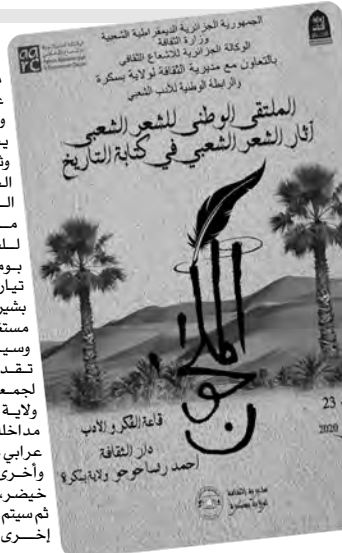 الجمهورية الجزائرية الديمقراطية الشعبية
وزارة الثقافة
الوكالة الجزائرية للإشعاع الثقافي
بالتعاون مع مديرية الثقافة لولاية بسكرة
والرابطة الوطنية للأدب الشعبي
aarc
الملتقى الوطني للشعر الشعبي
آثار الشعر الشعبي في كتابة التاريخ
الملحون
23
2020
قاعة الفكر والأدب
دار الثقافة
احمد رضا حوحو ولاية بسكرة
مديرية الثقافة
لولاية بسكرة
تيار
بشير
مستغ
وسيـ
تـقـد
لجمعـ
ولايـة
مداخلة
عرابي
وأخـرى
خيضر،
ثم سيتم
إخـــرى